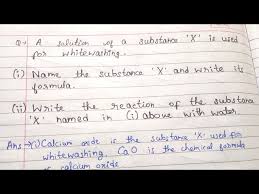 Q:- A solution of a substance 'X' is used
for whitewashing.
(i) Name the substance 'X' and write its
formula.
(ii) Write the reaction of the substance
'X' named in (i) above with water.
Ans →(i) Calcium oxide is the substance 'X' used for
whitewashing. CaO is the chemical formula
calcium oxide